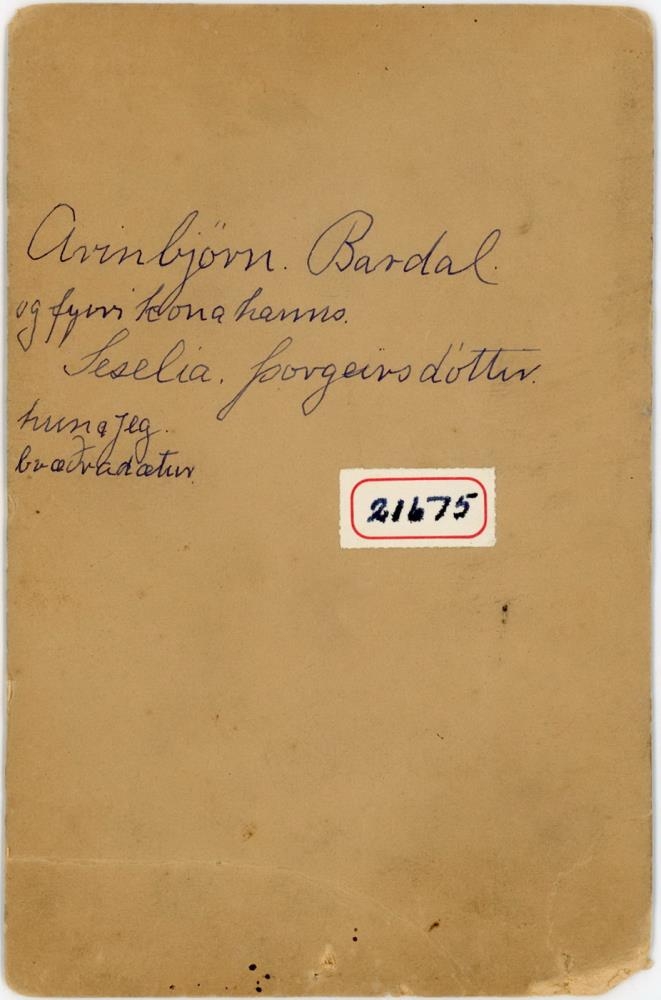 Arinbjörn. Bardal.
og fyrri kona hanns.
Seselia. Þorgeirsdóttir.
hun og Jeg.
bræðradætur
21675